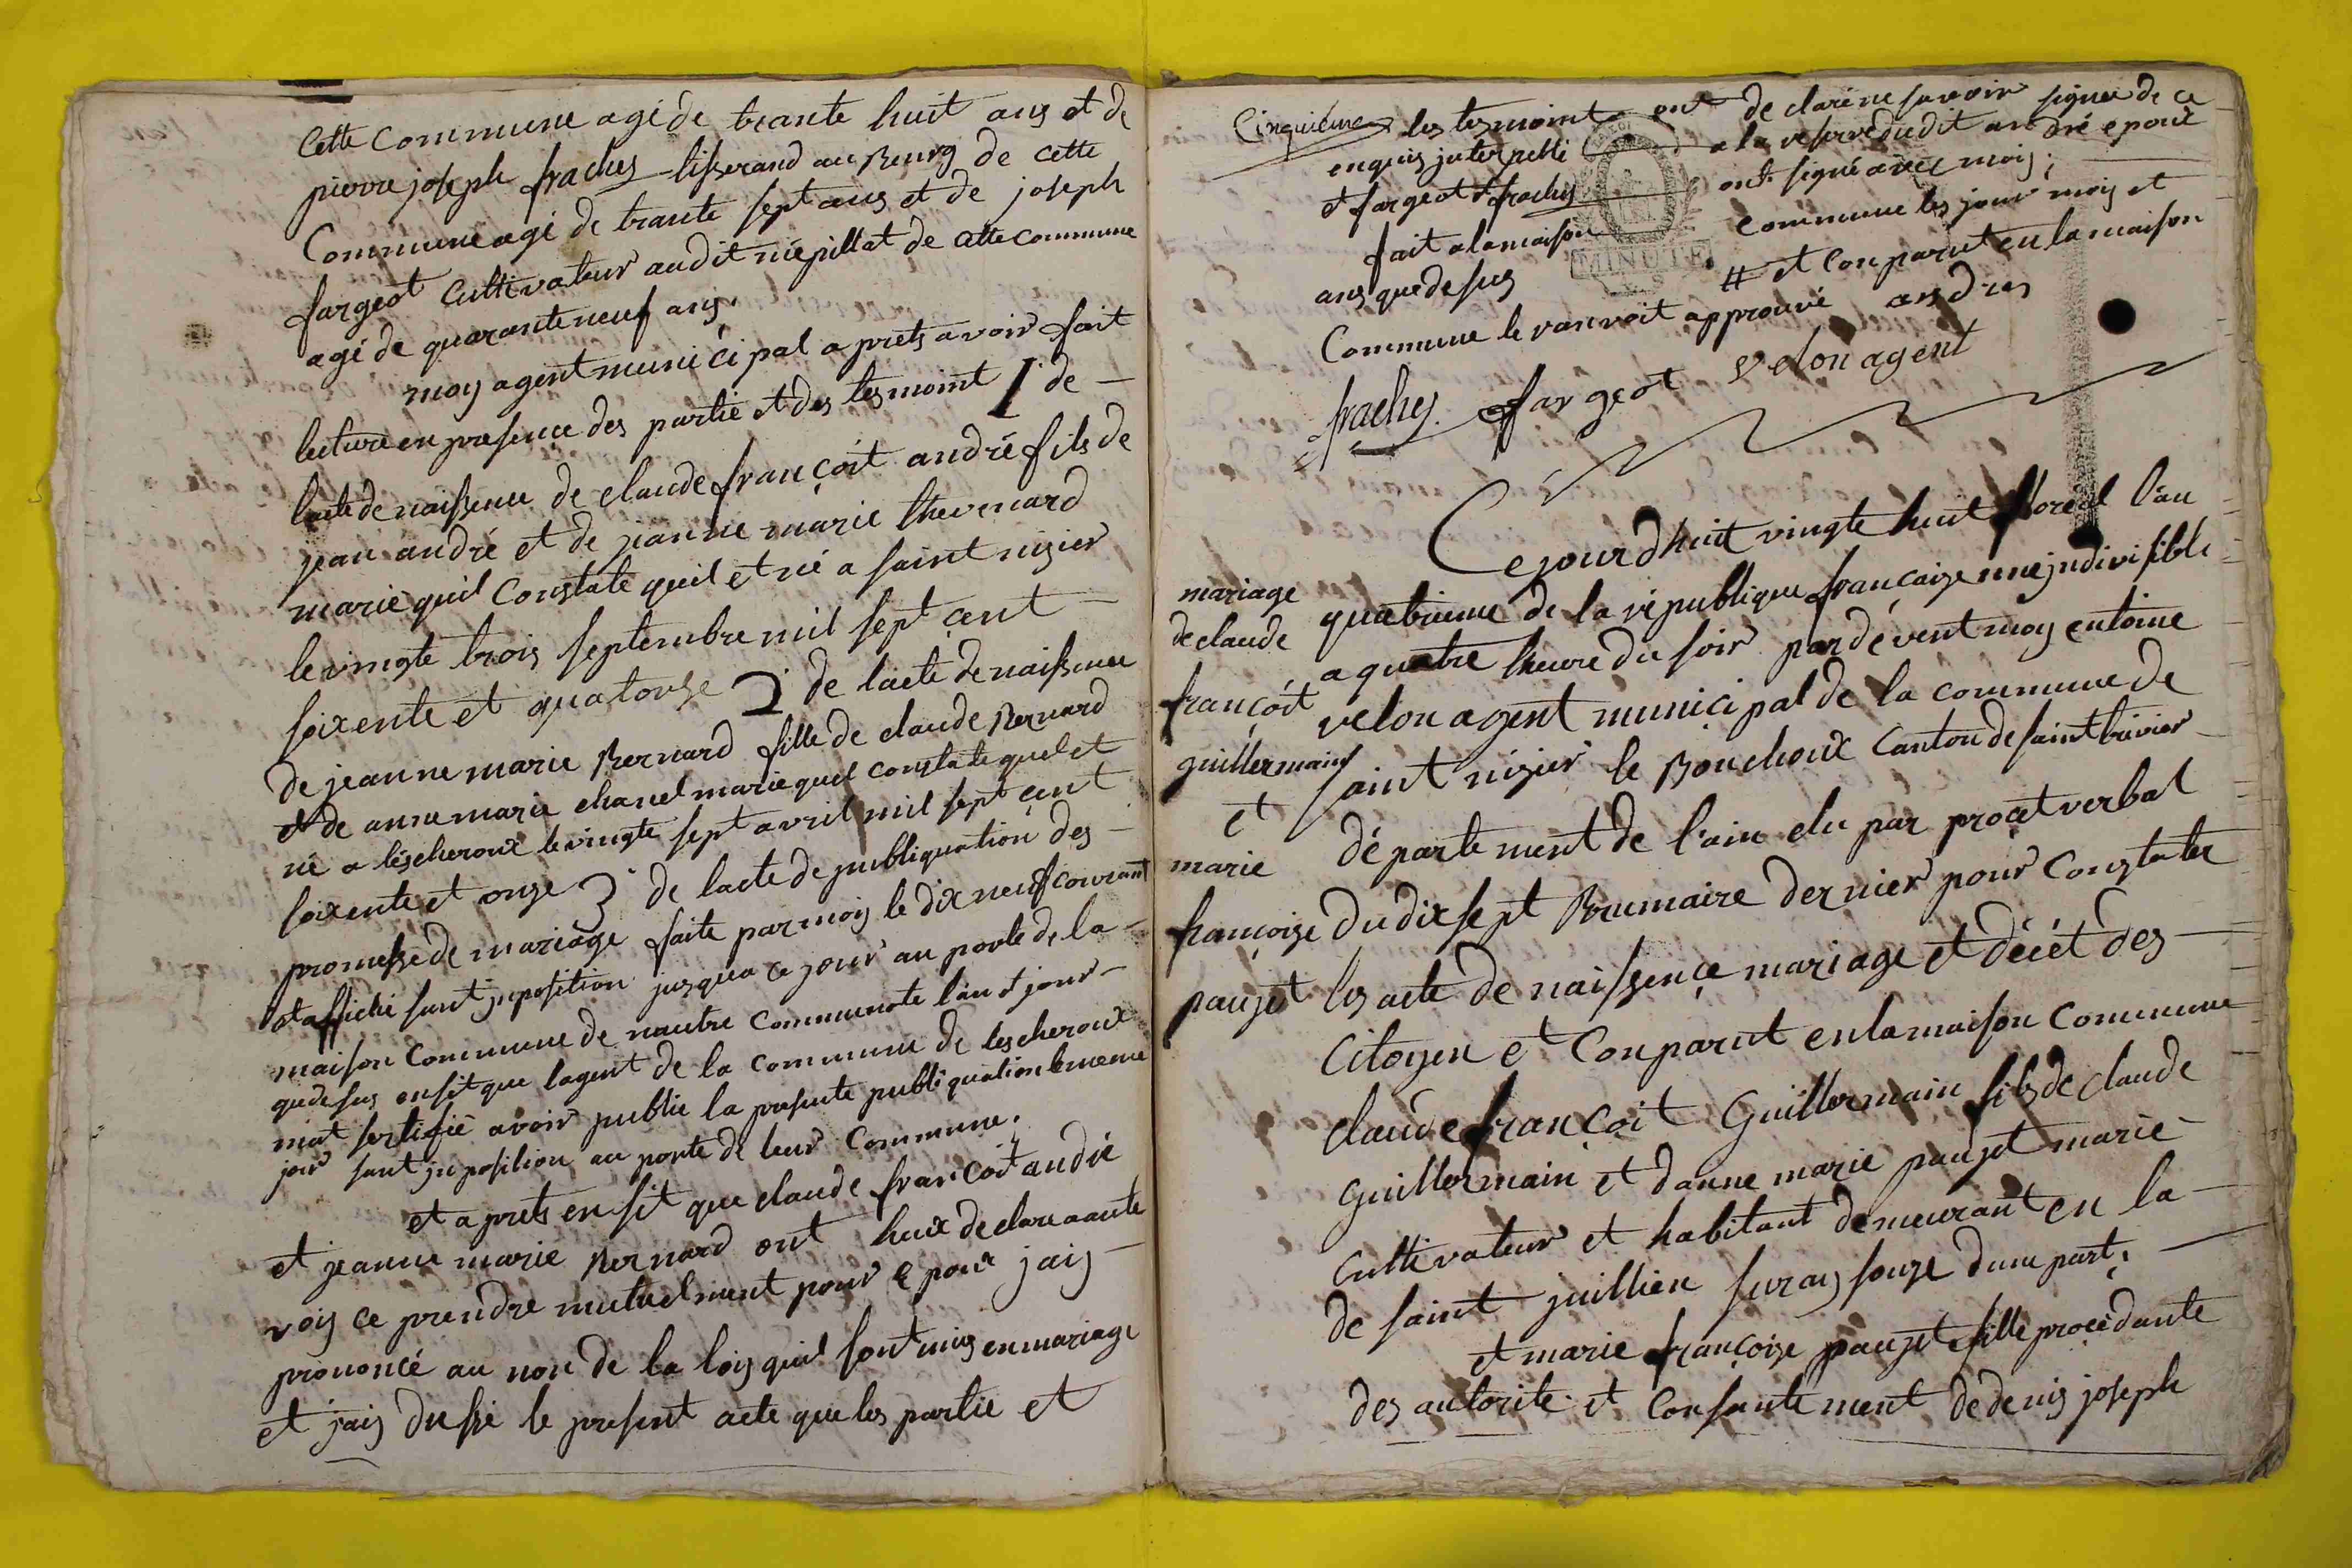 Cette Commune agé de trante huit ans et de
pierre joseph fraches tisserand au Bourg de cette
Commune agé de trante sept ans et de joseph
fargeot Cultivateur audit niépillat de cette commune
agé de quarante neuf ans.
moy agent municipal aprets avoir fait
lecture en presence des partie et des tesmoint 1° de
lacte de naissence de claude françoit andré fils de
jean andré et de jeanne marie thevenard
marié quil Constate quil et né a saint nizier
le vingte trois septembre mil sept cent
soixente et quatorze 2° de lacte de naissence
de jeanne marie Bernard fille de claude Bernard
et de anne marie chanel marie quel constate quel et
né a lescheroux le vingte sept avril mil sept cent
soixente et onze 3° de lacte de publiquation des
promesse de mariage faite par mois le dix neuf courant
et affiché sant inposition jusqua ce jour au porte de la
maison Commune de nautre Communote lan et jour
que desus ensit que lagent de la commune de lescheroux
mat sertifié avoir publie la presente publiquation le meme
jour sant jnposition au porte de leur Commune.
et aprets ensit que claude francoit andré
et jeanne marie Bernard ont heux declare a aute
vois ce prendre mutuelment pour epoux jais
prononcé au non de la lois quil sont unis en mariage
et jais dussé le present acte que les partie et
Cinquième les tesmoint ont de claré ne savoir signer de ce
enquis jnterpellé a la reserve dudit andré epoux
et fargeot et fraches ont signé avec mois.
fait a la maison commune les jour mois et
MINUTE
ans que desus # et Conparut en la maison
Commune le ranvoit approuvé andres
fraches fargeot velon agent
Cejourdhuit vingte huit floreal l'an
mariage
de claude
françoit
guillermain
et
marie
françoize
paujet
quatrieme de la république françaize une jndivisible
a quatre heure du soir par dévent moy entoine
velon agent municipal de la commune de
saint nizier le Bouchoux Canton de saint trivier
département de l'ain elu par procet verbal
du dix sept Brumaire dernier pour Constater
les acte de naissence mariage et décét des
Citoyen et Conparut en la maison Commune
claude françoit Guillermain fils de claude
Guillermain et danne marie paujet marié
Cultivateur et habitant demeurant en la
de saint juillien surays souze dune part.
et marie françoize paujet fille procédante
des autorite et Consante ment de denis joseph